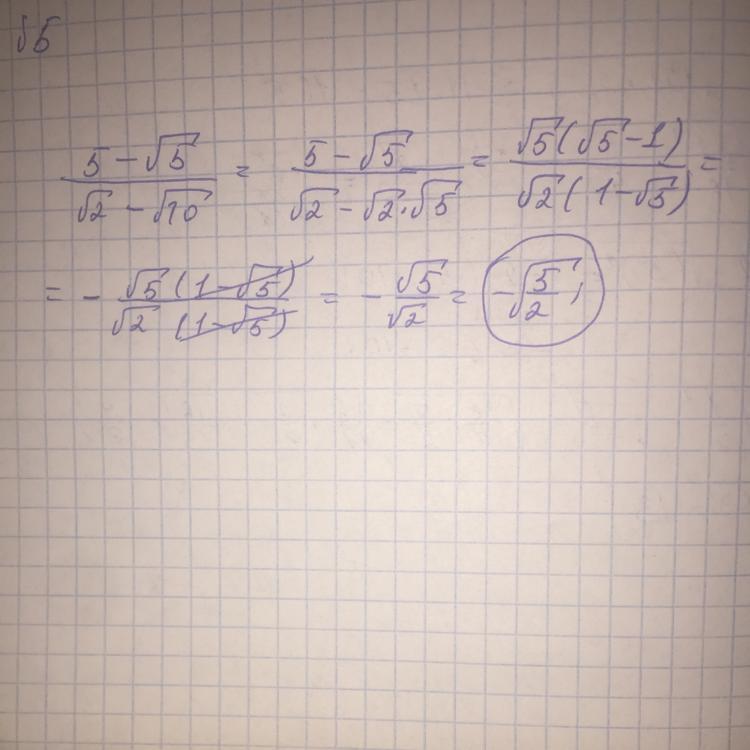 √5
(5 − √5)/(√2 − √10) = (5 − √5)/(√2 − √2·√5) = (√5(√5−1))/(√2(1−√5)) =
= − (√5(1−√5))/(√2(1−√5)) = − √5/√2 = −√(5/2);